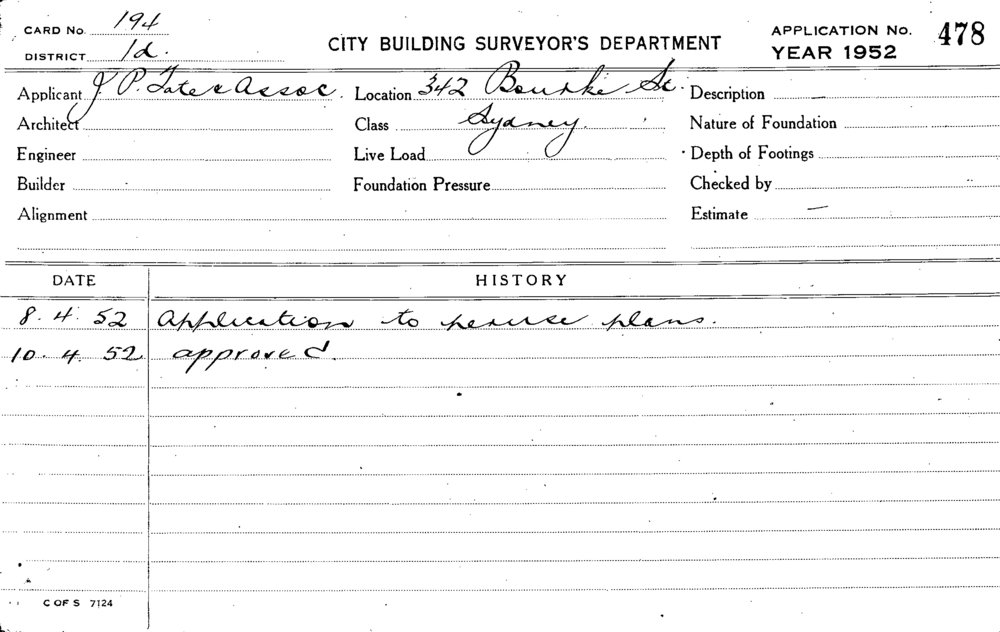 CARD No. 194
DISTRICT 1d.
CITY BUILDING SURVEYOR'S DEPARTMENT
APPLICATION No. 478
YEAR 1952
Applicant J. P. Tate & Assoc. Location 342 Bourke St. Description —
Architect Class Sydney. Nature of Foundation
Engineer Live Load Depth of Footings
Builder Foundation Pressure Checked by
Alignment Estimate —
DATE HISTORY
8. 4. 52 Application to peruse plans.
10. 4. 52 approved.
C OF S 7124